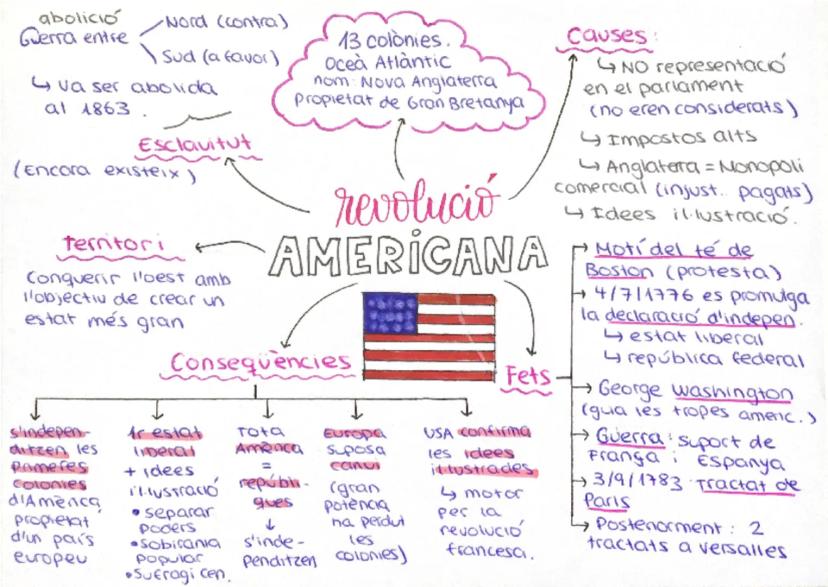 revolució
AMERICANA
13 colònies.
Oceà Atlàntic
nom: Nova Anglaterra
propietat de Gran Bretanya
abolició
Guerra entre
Nord (contra)
Sud (a favor)
↳ va ser abolida
al 1863.
Esclavitut
(Encara existeix)
Territori
Conquerir l'oest amb
l'objectiu de crear un
estat més gran
Causes:
↳ NO representació
en el parlament
(no eren considerats)
↳ Impostos alts
↳ Anglaterra = Monopoli
comercial (injust. pagats)
↳ Idees il·lustració.
Fets
Motí del té de
Boston (protesta)
4/7/1776 es promulga
la declaració d'indepen.
↳ estat liberal
↳ república federal
George Washington
(guia les tropes americ.)
Guerra: suport de
França i Espanya
3/9/1783: tractat de
París
Posteriorment: 2
tractats a versalles
Conseqüències
s'indepen-
ditzen les
primeres
colonies
d'Amèrica
propietat
d'un país
europeu
1r estat
liberal
+ idees
il·lustració
• separar
poders
• sobirania
popular
• Sufragi cen.
Tota
Amèrica
=
repúbli-
ques
↓
s'inde-
penditzen
Europa
suposa
canvi
(gran
potència
ha perdut
les
colonies)
USA confirma
les idees
il·lustrades
↳ motor
per la
revolució
francesa.